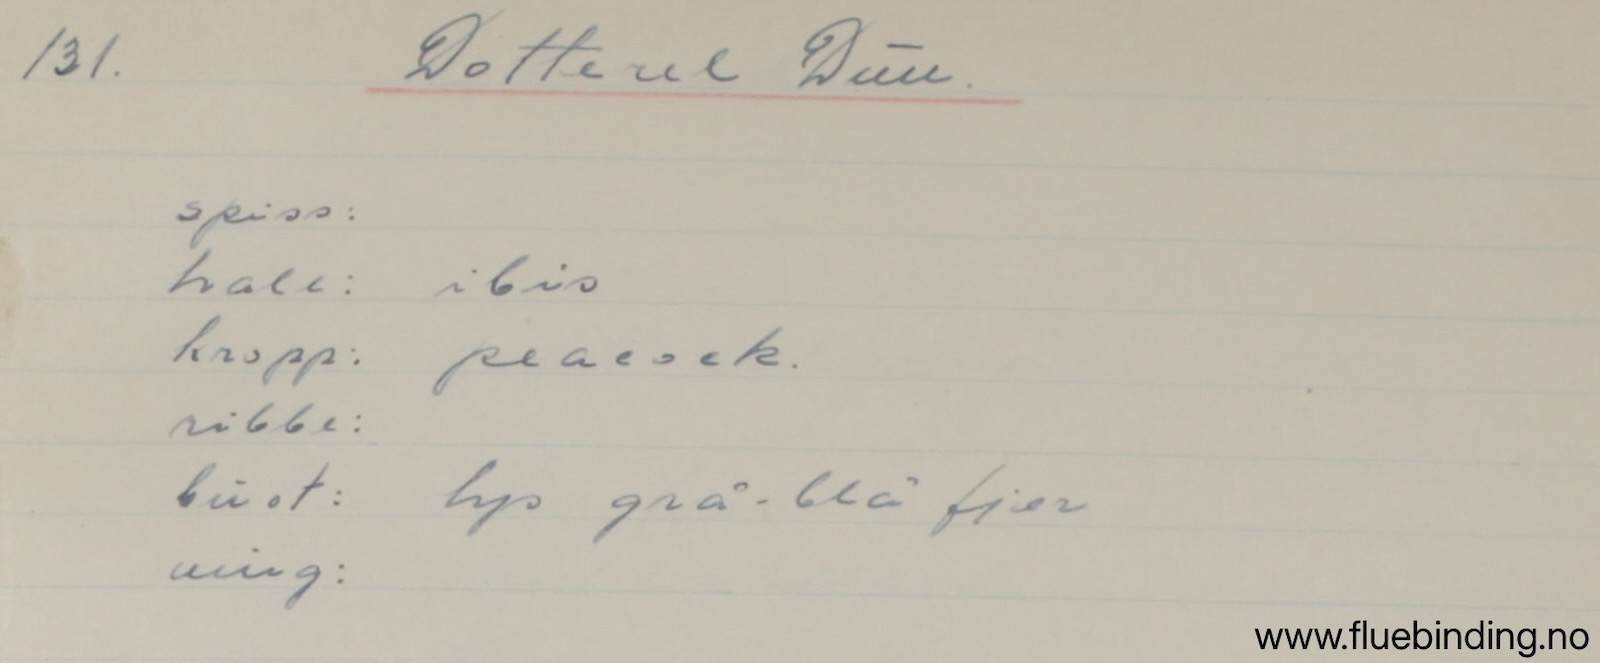 131. Dotterel Dūn.
spiss:
hale: ibis
kropp: peacock.
ribbe:
bust: lys grå-blå fjær
ving:
www.fluebinding.no